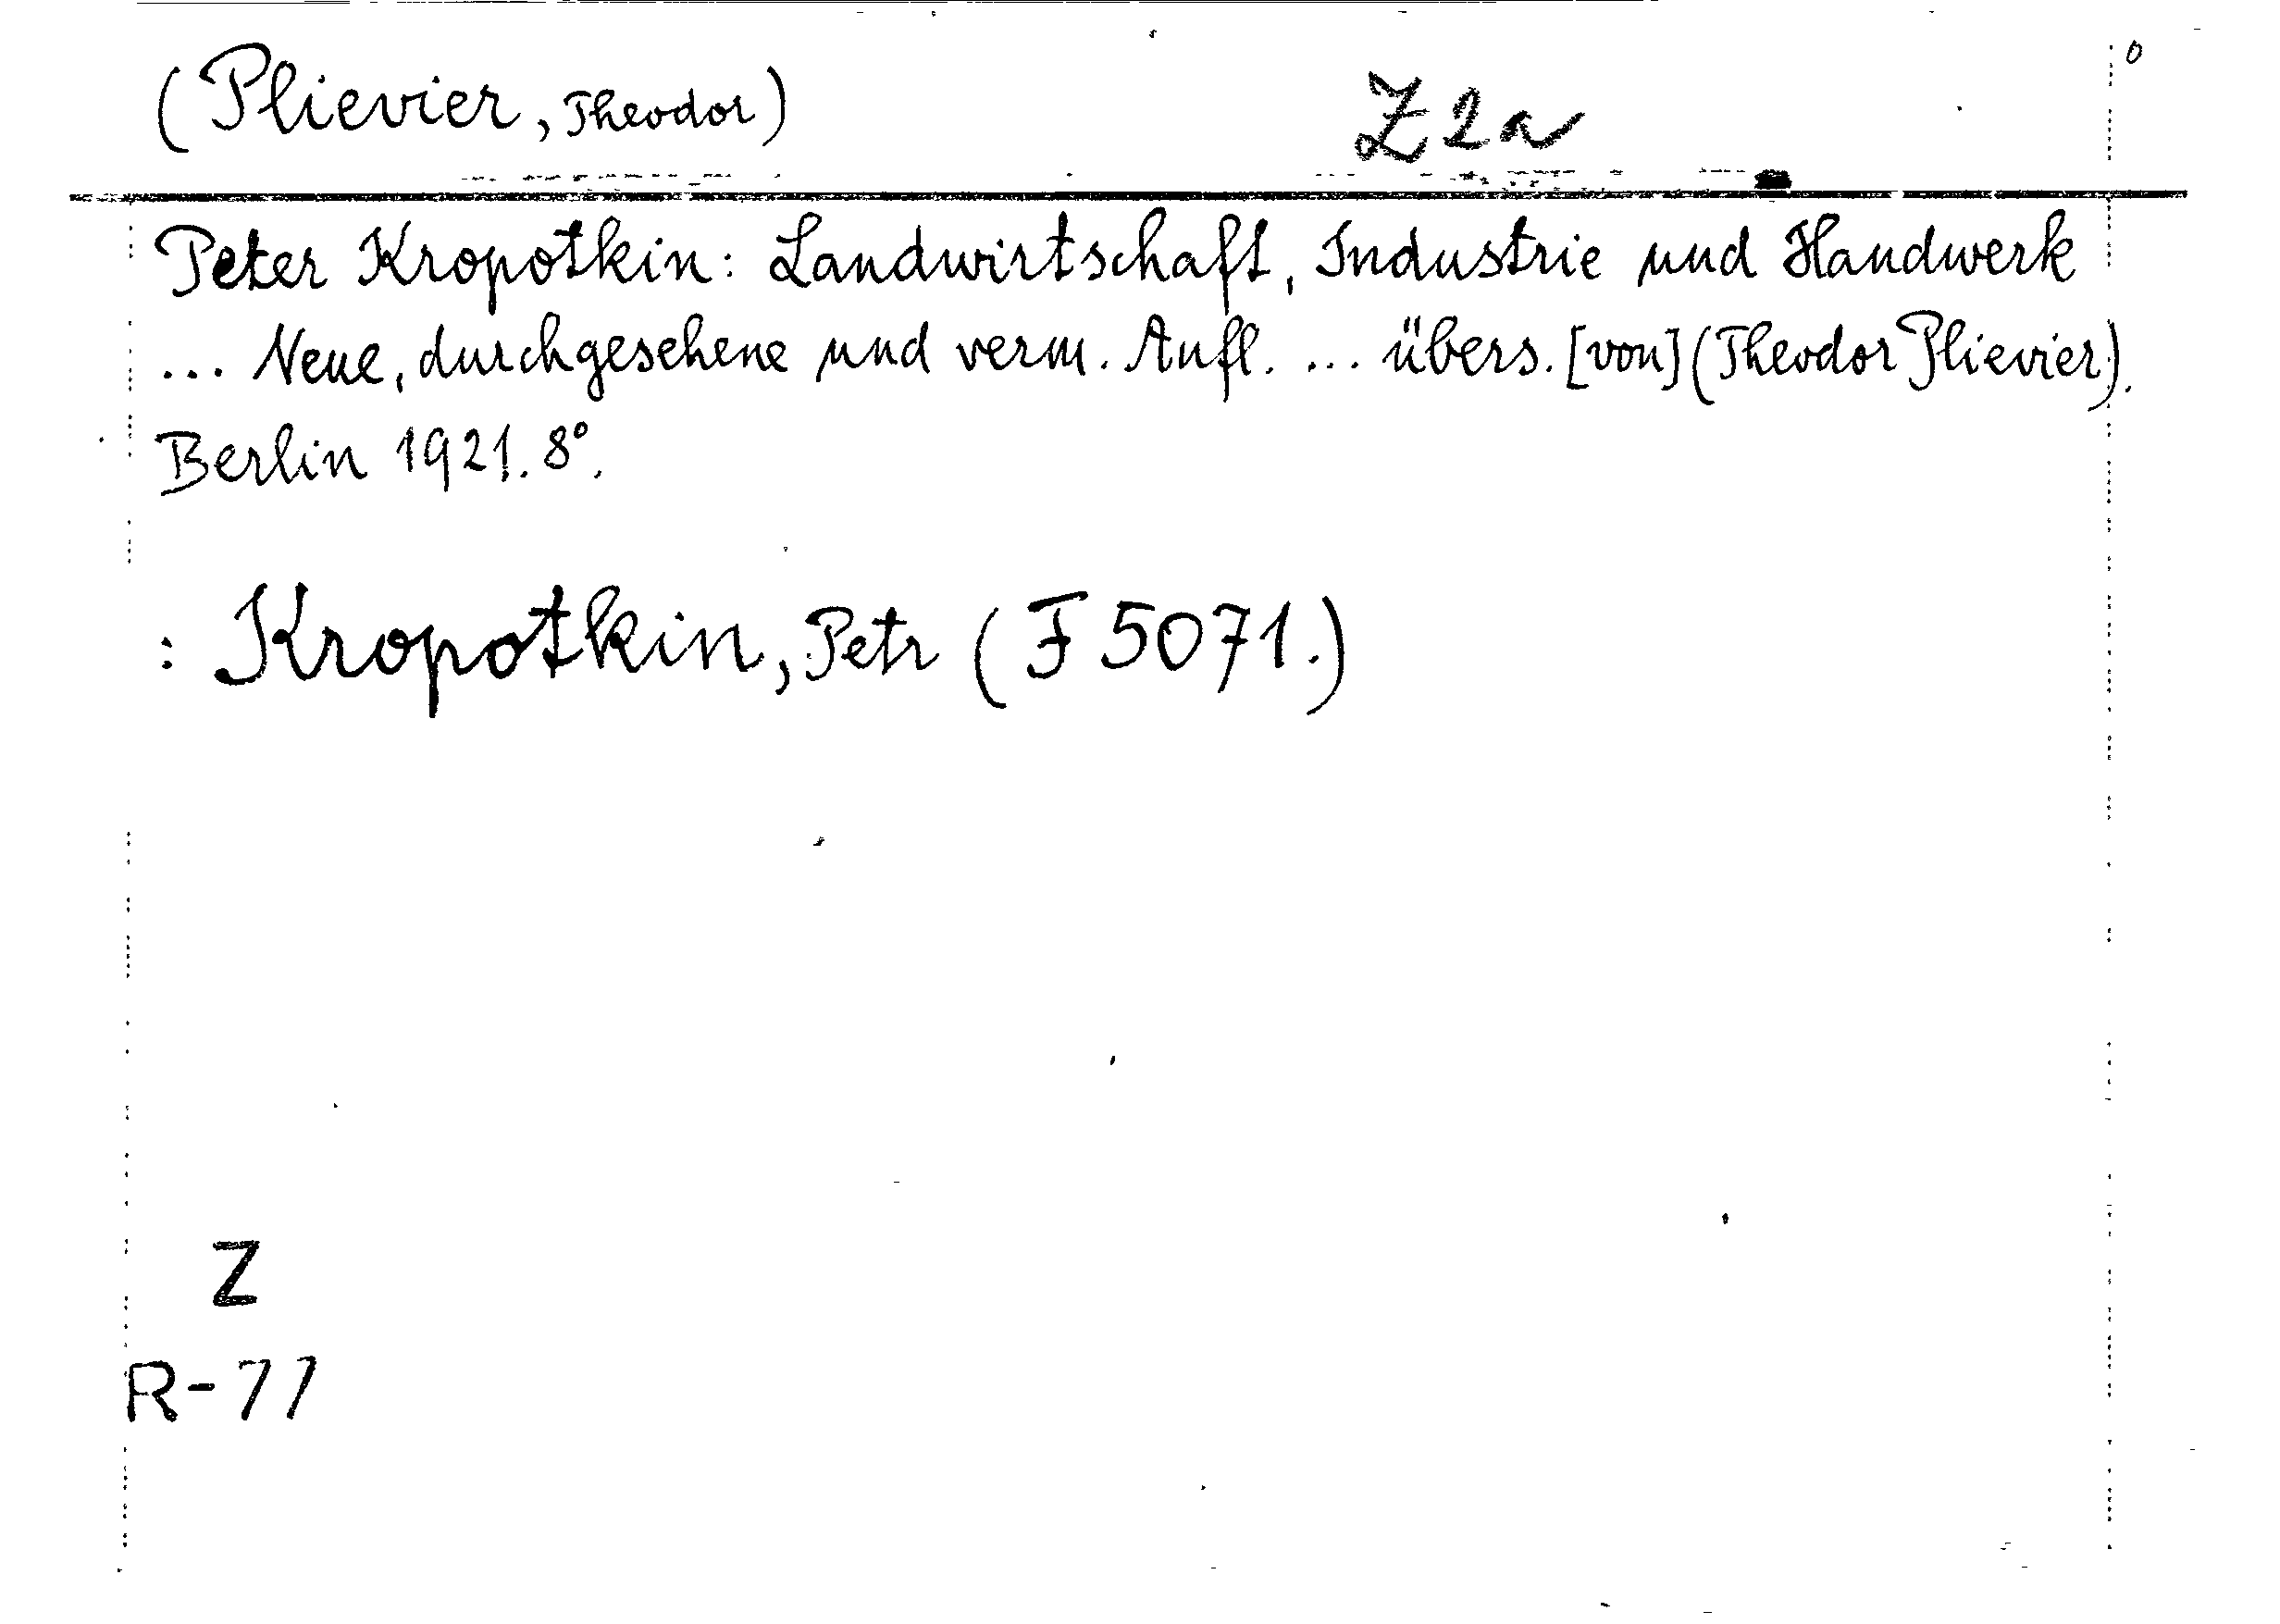 (Plievier, Theodor) Z2a
Peter Kropotkin: Landwirtschaft, Industrie und Handwerk
... Neue, durchgesehene und verm. Aufl. ... übers. [von] (Theodor Plievier).
Berlin 1921. 8°.
: Kropotkin, Petr (F 5071.)
Z
R-77